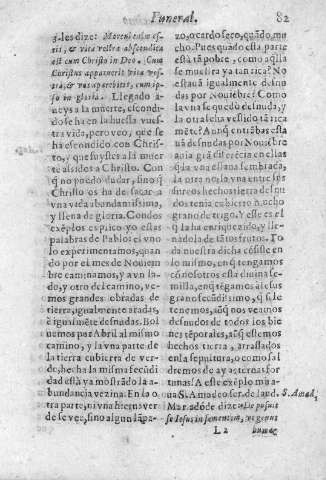 Funeral. 82
q̃ les dize: Mortui enim es-
tis, & vita vestra abscondita
est cum Christo in Deo. Cum
Christus apparuerit vita ves-
tra, & vos apparebitis, cum ip-
so in gloria. Llegado a-
ueys a la muerte, el condi-
do se ha en la huessa vues-
tra vida, pero veo, que se
ha escondido con Chris-
to, que fuystes a la muer
te assidos a Christo. Con
q̃ no puedo dudar, sino q̃
Christo os ha de sacar a
vna vida abundantissima,
y llena de gloria. Con dos
exẽplos explico yo estas
palabras de Pablo: el vno
lo experimentamos, quan
do por el mes de Nouiem
bre caminamos, y a vn la-
do, y otro del camino, ve-
mos grandes obradas de
tierra, igualmente aradas,
è igualmẽte desnudas. Bol
uemos por Abril al mismo
camino, y la vna parte de
la tierra cubierta de ver-
de, hecha la misma fecũdi
dad està ya mostrãdo la a-
bundancia vezina. En la o
tra parte, ni vna hierua ver
de se vee, sino algun lãpa-
zo, o cardo seco, quãdo mu
cho. Pues quãdo esta parte
està tã pobre, como aq̃lla
se muestra ya tan rica? No
estauã igualmente desnu
das por Nouiẽbre? Como
la vna se quedò desnuda, y
la otra està vestida tã rica
mẽte? Aunq̃ entrãbas esta
uã desnudas por Nouiẽbre
auia grã diferẽcia en ellas
q̃ la vna estaua sembrada,
la otra no, la vna tenia sus
senos hechos tierra desnu
dos tenia cubierto mucho
grano de trigo. Y esse es el
q̃ la ha enriquezido, y lle-
nadola de tãtos frutos. To
da nuestra dicha cõsiste en
lo mismo, en q̃ tengamos
cõ nosotros esta diuina se-
milla, en q̃ tẽgamos al esse
grano fecũdissimo, q̃ si le
tenemos, aũq̃ nos veamos
desnudos de todos los bie
nes tẽporales, aũq̃ estemos
hechos tierra, arrastrados
en la sepultura, o como sal
dremos de ay a eternas for
tunas! A este exẽplo mira
ua S. Amadeo ser. de laud. S. Amad.
Mar. adõde dize: De posuit
se Iesus in sementem, vt genus
L 2 huma-